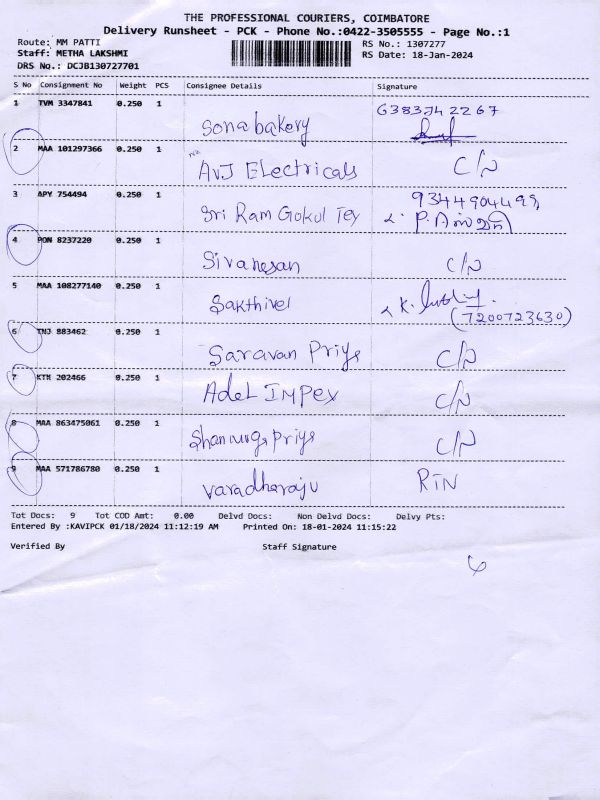 THE PROFESSIONAL COURIERS, COIMBATORE
Delivery Runsheet - PCK - Phone No.:0422-3505555 - Page No.:1
Route: MM PATTI RS No.: 1307277
Staff: METHA LAKSHMI RS Date: 18-Jan-2024
DRS No.: DCJB130727701
S No Consignment No Weight PCS Consignee Details Signature
1 TVM 3347841 0.250 1 Sona bakery 6383742267
2 MAA 101297366 0.250 1 AVJ Electricals C/N
3 APY 754494 0.250 1 Sri Ram Gokul Tex 9344904499
4 PON 8237220 0.250 1 Sivanesan C/N
5 MAA 108277140 0.250 1 Sakthivel (7200723630)
6 TNJ 883462 0.250 1 Saravan Priya C/N
7 KTM 202466 0.250 1 Adel Impex C/N
8 MAA 863475061 0.250 1 Shanmuga priya C/N
9 MAA 571786780 0.250 1 Varadharaju RTN
Tot Docs: 9 Tot COD Amt: 0.00 Delvd Docs: Non Delvd Docs: Delvy Pts:
Entered By :KAVIPCK 01/18/2024 11:12:19 AM Printed On: 18-01-2024 11:15:22
Verified By Staff Signature